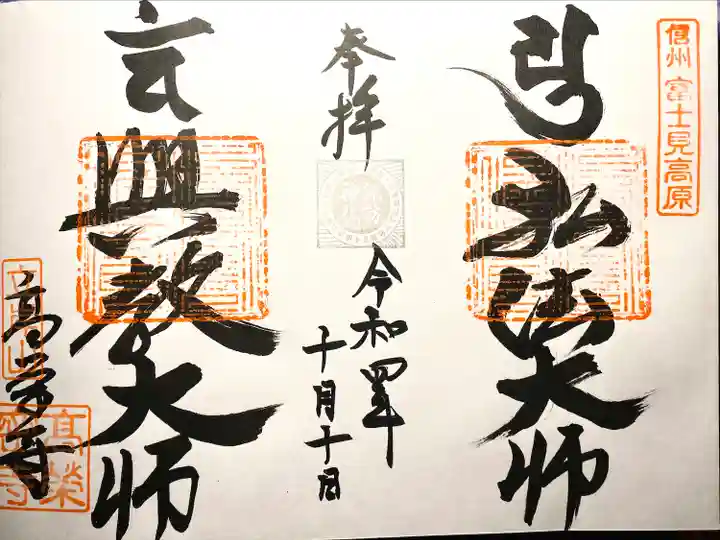 信州 富士見高原
弘法大師
奉拝
令和四年
十月十日
興教大師
高栄寺
高榮